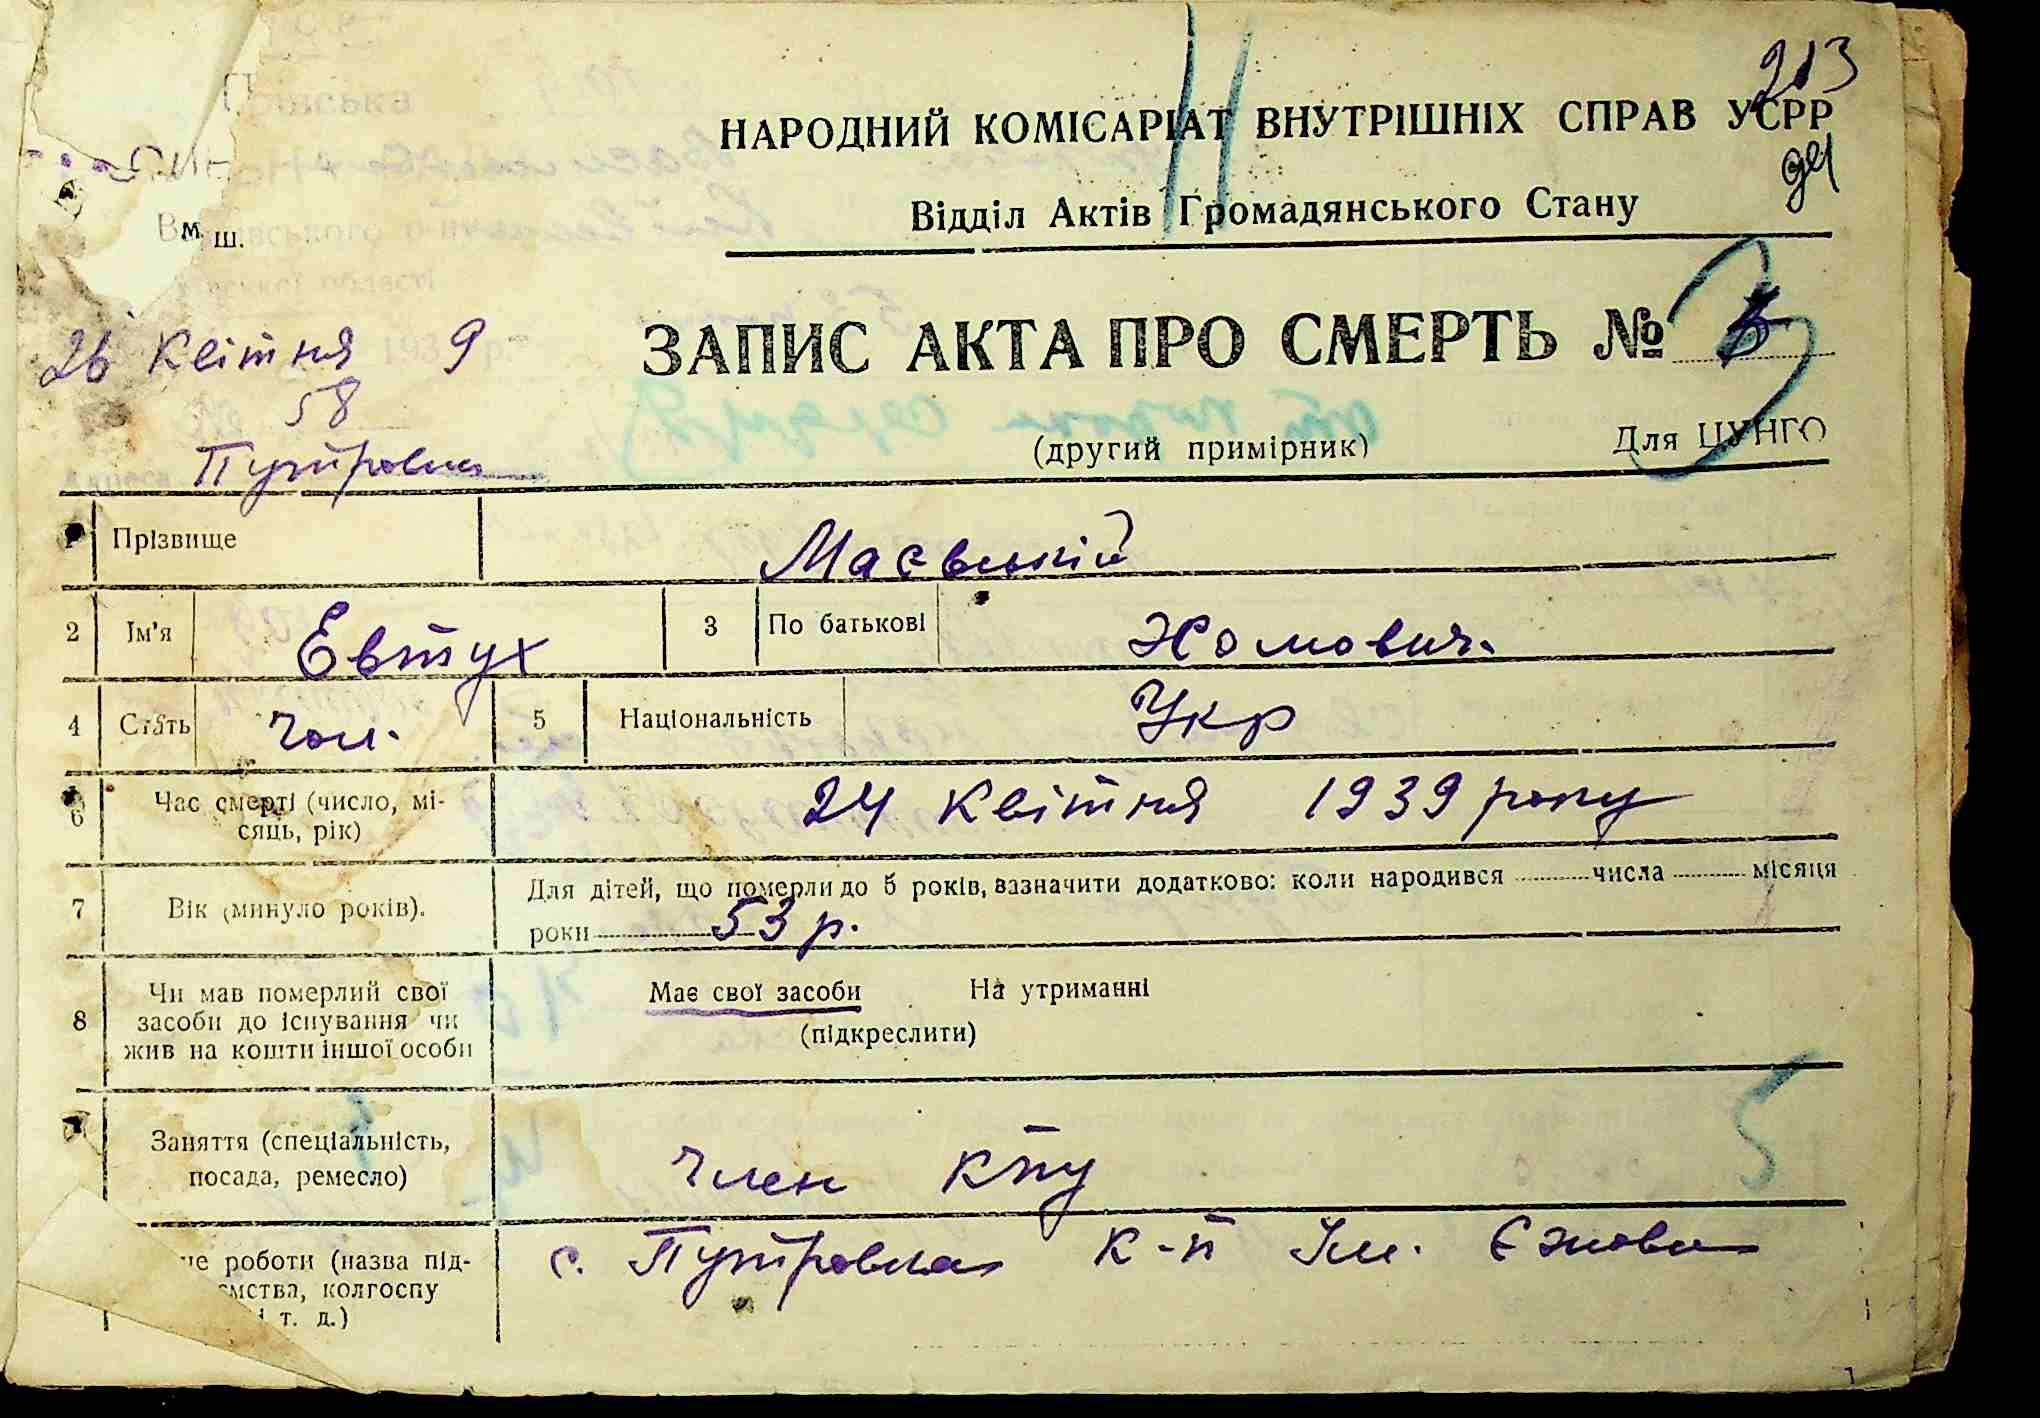 213
НАРОДНИЙ КОМІСАРІАТ ВНУТРІШНІХ СПРАВ УСРР
Відділ Актів Громадянського Стану
м
ш.
ської області
26 Квітня 1939 р.
58
Путровка
ЗАПИС АКТА ПРО СМЕРТЬ №
(другий примірник)
Для ЦУНГО
1 Прізвище Маєвський
2 Ім'я Евтух 3 По батькові Хомович.
4 Стать Чол. 5 Національність Укр
6 Час смерті (число, мі-
сяць, рік) 24 Квітня 1939 року
7 Вік (минуло років). Для дітей, що померли до 5 років, зазначити додатково: коли народився числа місяця
роки 53 р.
8 Чи мав померлий свої
засоби до існування чи
жив на кошти іншої особи
Має свої засоби На утриманні
(підкреслити)
5
Заняття (спеціальність,
посада, ремесло) Член КПУ
це роботи (назва під-
ємства, колгоспу
і т. д.)
с. Путровка к-п Їм. Єжова